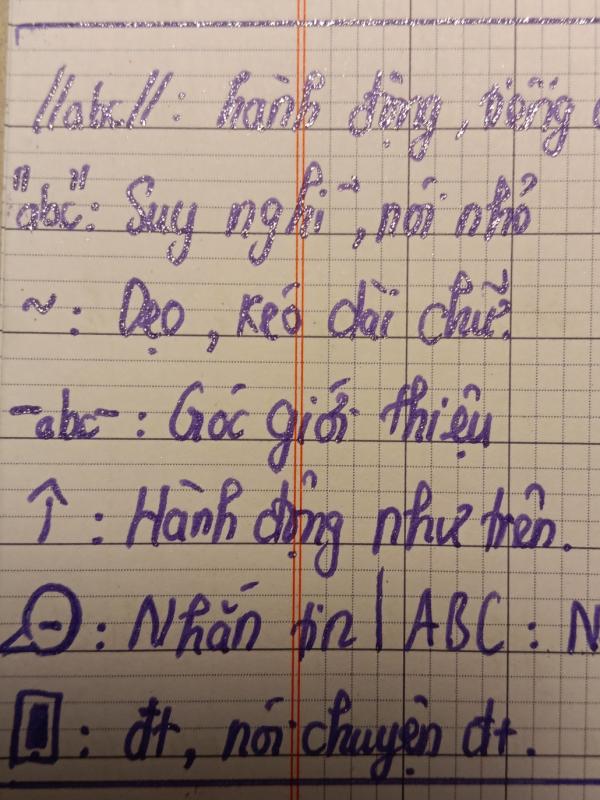 //abc//: hành động, tiếng
"abc": Suy nghĩ, nói nhỏ
~: Dẹo, kéo dài chữ.
-abc-: Góc giới thiệu
↑: Hành động như trên.
: Nhắn tin | ABC: N
: đt, nói chuyện đt.